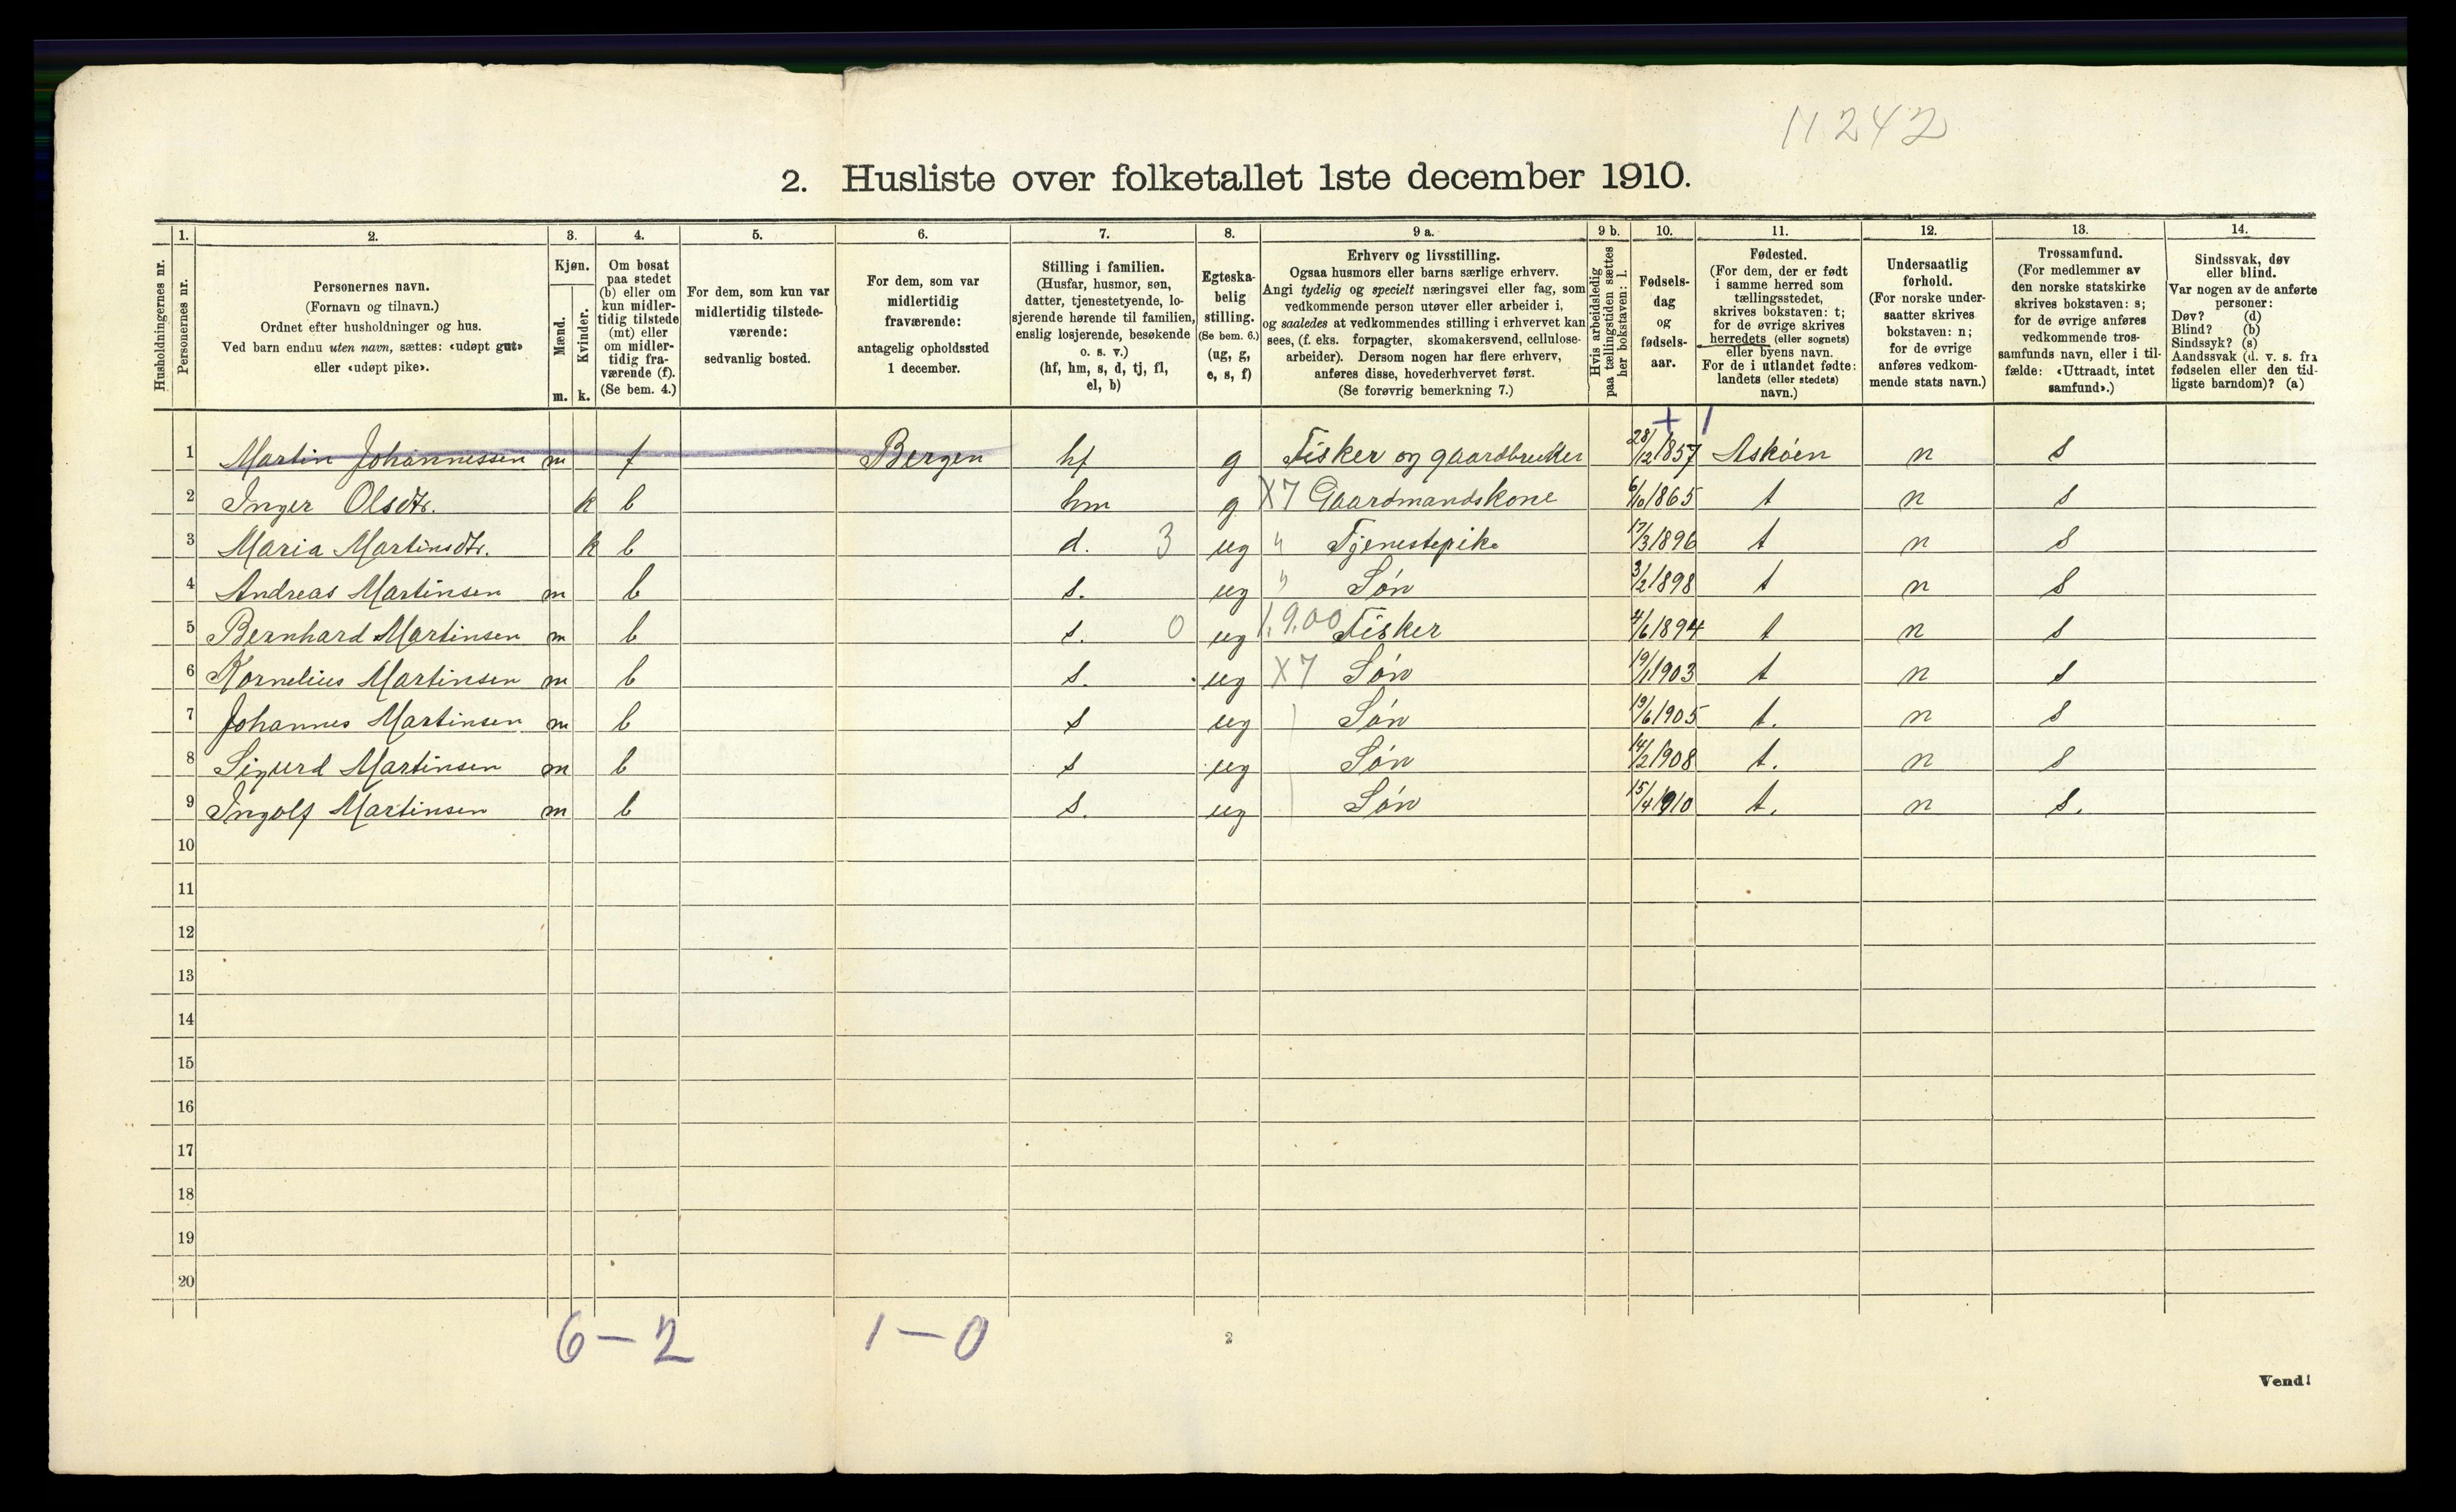 11242
2. Husliste over folketallet 1ste december 1910.
Husholdningernes nr.
1. Personernes nr.
2. Personernes navn. (Fornavn og tilnavn.) Ordnet efter husholdninger og hus. Ved barn endnu uten navn, sættes: «udøpt gut» eller «udøpt pike».
3. Kjøn. Mænd. m. Kvinder. k.
4. Om bosat paa stedet (b) eller om kun midlertidig tilstede (mt) eller om midlertidig fraværende (f). (Se bem. 4.)
5. For dem, som kun var midlertidig tilstedeværende: sedvanlig bosted.
6. For dem, som var midlertidig fraværende: antagelig opholdssted 1 december.
7. Stilling i familien. (Husfar, husmor, søn, datter, tjenestetyende, losjerende hørende til familien, enslig losjerende, besøkende o. s. v.) (hf, hm, s, d, tj, fl, el, b)
8. Egteskabelig stilling. (Se bem. 6.) (ug, g, e, s, f)
9 a. Erhverv og livsstilling. Ogsaa husmors eller barns særlige erhverv. Angi tydelig og specielt næringsvei eller fag, som vedkommende person utøver eller arbeider i, og saaledes at vedkommendes stilling i erhvervet kan sees, (f. eks. forpagter, skomakersvend, cellulosearbeider). Dersom nogen har flere erhverv, anføres disse, hovederhvervet først. (Se forøvrig bemerkning 7.)
9 b. Hvis arbeidsledig paa tællingstiden sættes her bokstaven: l.
10. Fødselsdag og fødselsaar.
11. Fødested. (For dem, der er født i samme herred som tællingsstedet, skrives bokstaven: t; for de øvrige skrives herredets (eller sognets) eller byens navn. For de i utlandet fødte: landets (eller stedets) navn.)
12. Undersaatlig forhold. (For norske undersaatter skrives bokstaven: n; for de øvrige anføres vedkommende stats navn.)
13. Trossamfund. (For medlemmer av den norske statskirke skrives bokstaven: s; for de øvrige anføres vedkommende trossamfunds navn, eller i tilfælde: «Uttraadt, intet samfund».)
14. Sindssvak, døv eller blind. Var nogen av de anførte personer: Døv? (d) Blind? (b) Sindssyk? (s) Aandssvak (d. v. s. fra fødselen eller den tidligste barndom)? (a)
+ 1
1 Martin Johannessen m f Bergen hf g Fisker og gaardbruker 28/12 1857 Askøen n s
2 Inger Olsdtr. k b hm g X7 Gaardmandskone 6/10 1865 t n s
3 Maria Martinsdtr. k b d. 3 ug " Tjenestepike 17/3 1896 t n s
4 Andreas Martinsen m b s. ug " Søn 3/2 1898 t n s
5 Bernhard Martinsen m b s. 0 ug 1.9.00 Fisker 4/6 1894 t n s
6 Kornelius Martinsen m b s. ug X7 Søn 19/1 1903 t n s
7 Johannes Martinsen m b s ug Søn 19/6 1905 t. n s
8 Sigurd Martinsen m b s ug Søn 14/2 1908 t. n s
9 Ingolf Martinsen m b s. ug Søn 15/4 1910 t. n s.
10
11
12
13
14
15
16
17
18
19
20
6 – 2 1 – 0
2
Vend!